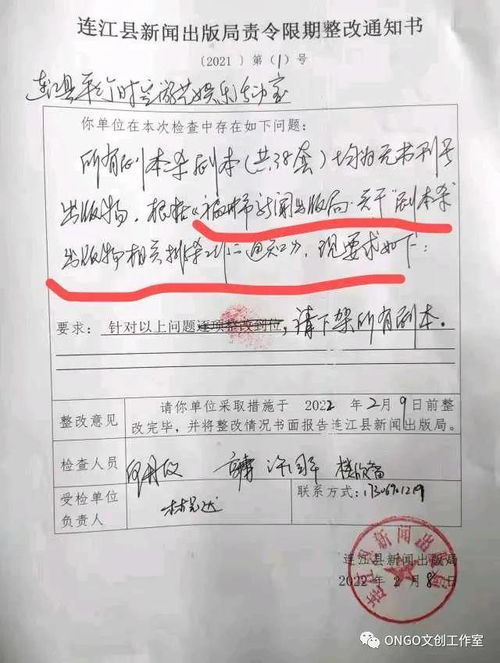 连江县新闻出版局责令限期整改通知书
〔2021〕第(1)号
连江县 时 游艺娱乐活动室
你单位在本次检查中存在如下问题：
所有剧本杀剧本(共38套)均为无书刊号
出版物，根据《福州市新闻出版局关于“剧本杀”
出版物相关排查的通知》，现要求如下：
要求：针对以上问题逐项整改到位，请下架所有剧本。
整改意见
请你单位采取措施于 2022 年 2 月 9 日前整
改完毕，并将整改情况书面报告连江县新闻出版局。
检查人员
受检单位
负责人
联系方式：
连江县新闻出版局
2022年 2 月 8 日
连江县新闻出版局
ONGO文创工作室